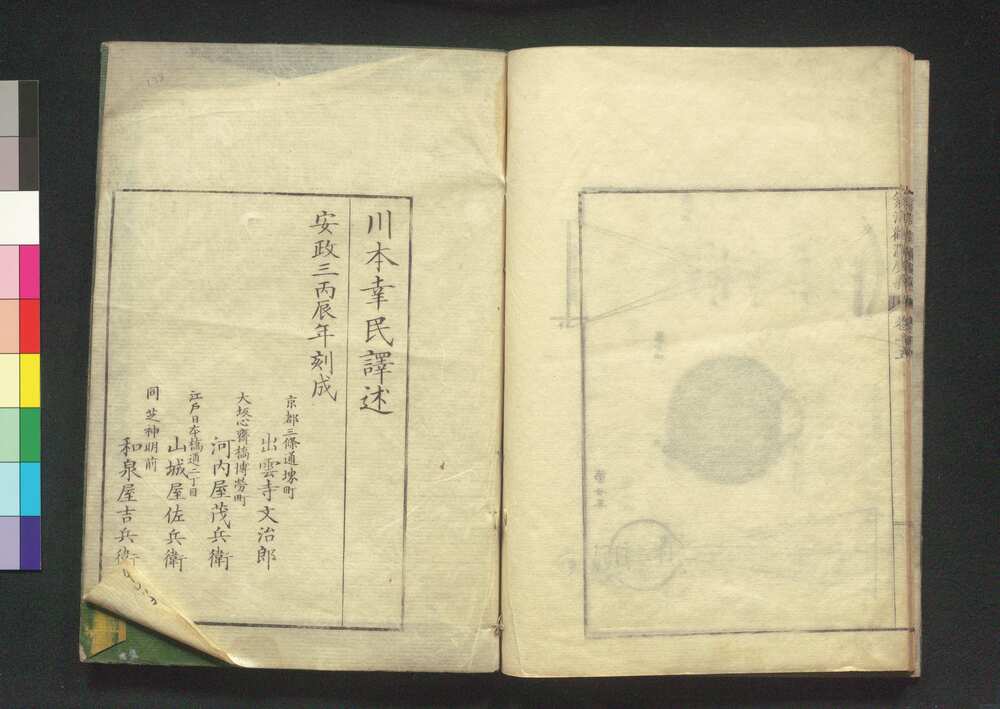 川本幸民譯述
安政三丙辰年刻成
京都三條通堺町
出雲寺文治郎
大坂心齋橋博勞町
河内屋茂兵衛
江戸日本橋通二丁目
山城屋佐兵衛
同芝神明前
和泉屋吉兵衛